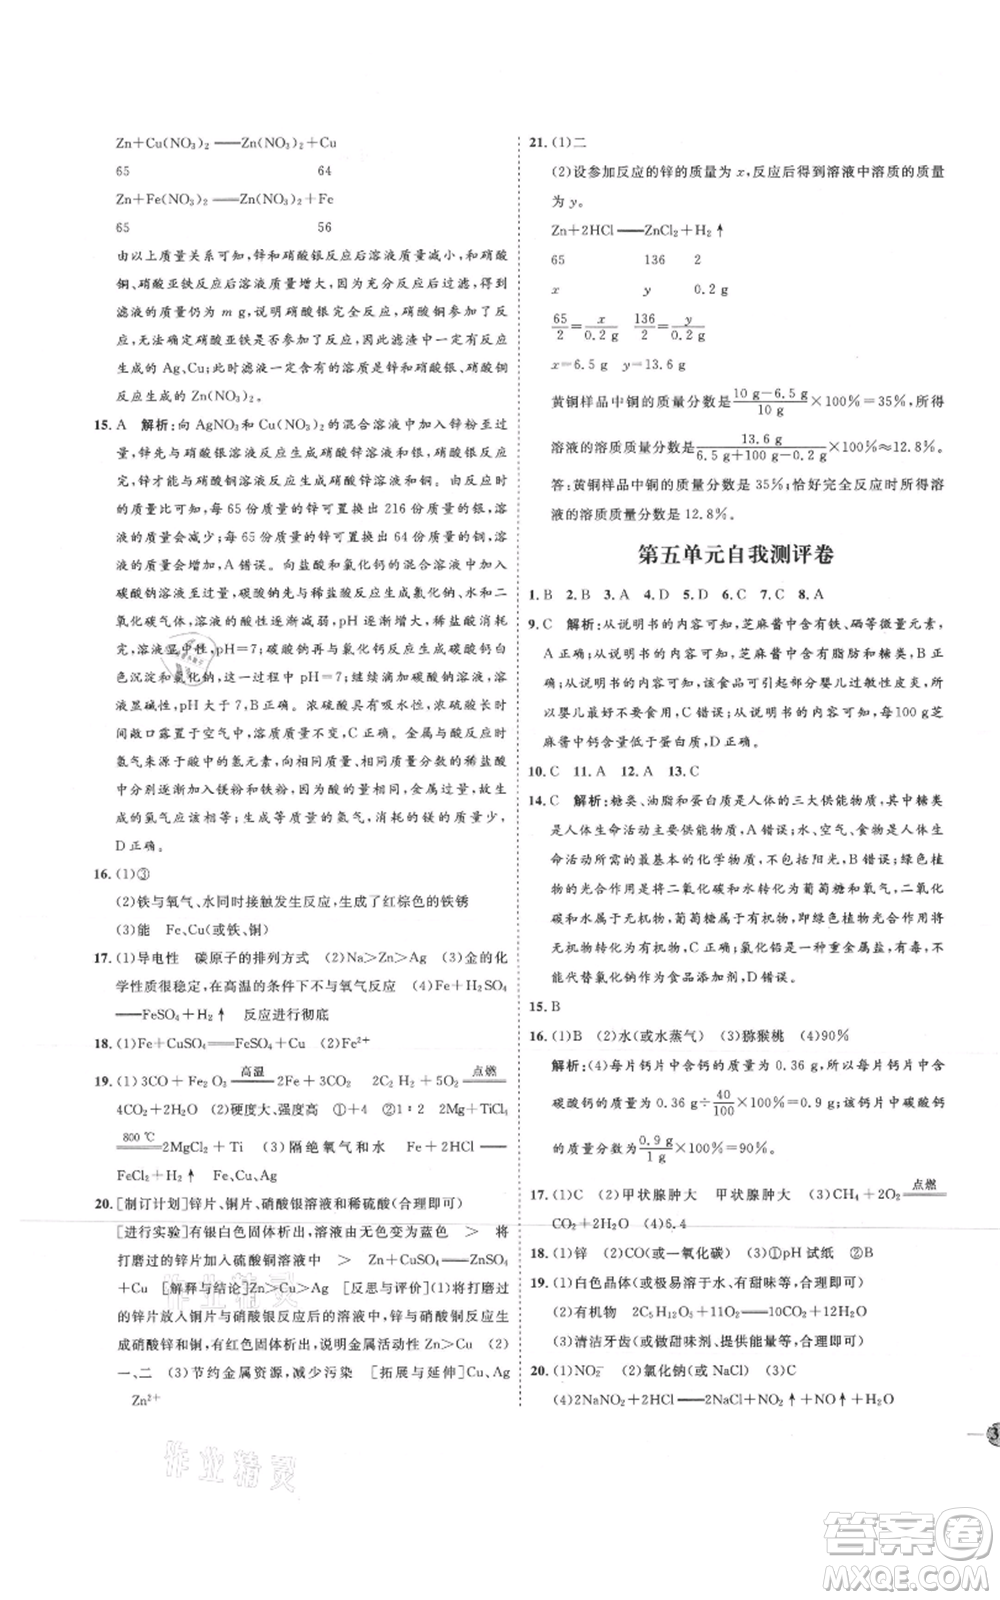 Zn+Cu(NO₃)₂══Zn(NO₃)₂+Cu
65 64
Zn+Fe(NO₃)₂══Zn(NO₃)₂+Fe
65 56
由以上质量关系可知,锌和硝酸银反应后溶液质量减小,和硝酸
铜、硝酸亚铁反应后溶液质量增大,现充分反应后过滤,得到的
滤液的质量仍为 m g,说明硝酸银完全反应,硝酸铜参加了反
应,无法确定硝酸亚铁是否参加反应。故滤渣中一定含有置换
出的 Ag、Cu;此时滤液一定含有的溶质是锌和硝酸银、硝酸铜
反应生成的 Zn(NO₃)₂。
15. A 解析:向 AgNO₃和 Cu(NO₃)₂的混合溶液中加入锌粉至过
量,锌先与硝酸银反应生成硝酸锌和银,待硝酸银完全反应后,
锌才能与硝酸铜溶液反应生成硝酸锌和铜。由反应的质量关
系可知,前一反应中,每 65 份质量的锌可置换出 216 份质量的
银,溶液质量会减少;每 65 份质量的锌可置换出 64 份质量的
铜,溶液质量会增加,A 错误。向盐酸和氯化钙的混合溶液中加入
碳酸钠溶液至过量,盐酸先与碳酸钠反应生成氯化钠、水和二
氧化碳气体,溶液的酸性逐渐减弱,pH 逐渐增大,盐酸消耗
完,溶液显中性,pH=7;碳酸钠再与氯化钙反应生成碳酸钙白
色沉淀和氯化钠,这一过程中溶液的 pH=7;继续滴加碳酸钠溶液,
溶液显碱性,pH 大于 7,B 正确。浓硫酸具有吸水性,浓硫酸长时
间敞口露置于空气中,溶质质量不变,C 正确。金属与酸反应,
氢气质量取决于酸中的氢元素,向等质量、等质量分数的稀盐酸中
分别加入镁粉和铁粉至过量,盐酸完全反应,氢元素质量相等,故生
成的氢气质量相等;生成等质量的氢气,消耗的镁的质量小,
D 正确。
16. (1)③
(2)铁与氧气、水同时接触发生反应,生成了红棕色的铁锈
(3)能 Fe、Cu(或铁、铜)
17. (1)导电性 碳原子的排列方式 (2)Na>Zn>Ag (3)金的化
学性质很稳定,在高温的条件下不与氧气反应 (4)Fe+H₂SO₄
══FeSO₄+H₂↑ 反应进行彻底
18. (1)Fe+CuSO₄══FeSO₄+Cu (2)Fe²⁺
19. (1)3CO+Fe₂O₃ 高温══ 2Fe+3CO₂ 2C₂H₂+5O₂ 点燃══
4CO₂+2H₂O (2)硬度大、强度高 ①+4 ②1∶2 2Mg+TiCl₄
800 ℃══ 2MgCl₂+Ti (3)隔绝氧气和水 Fe+2HCl══
FeCl₂+H₂↑ Fe、Cu、Ag
20. [制订计划]锌片、铜片、硝酸银溶液和稀硫酸(合理即可)
[进行实验]有银白色固体析出,溶液由无色变为蓝色 > 将
打磨过的锌片加入硫酸铜溶液中 > Zn+CuSO₄══ZnSO₄
+Cu [解释与结论]Zn>Cu>Ag [反思与评价](1)将打磨过
的锌片放入铜片与硝酸银反应后的溶液中,锌与硝酸铜反应生成
硝酸锌和铜,有红色固体析出,说明金属活动性 Zn>Cu (2)
一、二 (3)节约金属资源,减少污染 [拓展与延伸]Cu、Ag
Zn²⁺
21. (1)二
(2)设参加反应的锌的质量为 x,反应后得到溶液中溶质的质量
为 y。
Zn+2HCl══ZnCl₂+H₂↑
65 136 2
x y 0.2 g
65/2=x/0.2 g 136/2=y/0.2 g
x=6.5 g y=13.6 g
黄铜样品中铜的质量分数是 (10 g−6.5 g)/10 g×100%=35%,所得
溶液的溶质质量分数是 13.6 g/(6.5 g+100 g−0.2 g)×100%≈12.8%。
答:黄铜样品中铜的质量分数是 35%;恰好完全反应时所得溶
液的溶质质量分数是 12.8%。
第五单元自我测评卷
1. B 2. B 3. A 4. D 5. D 6. C 7. C 8. A
9. C 解析:从说明书的内容可知,芝麻酱中含有铁、硒等微量元素,
A 正确;从说明书的内容可知,芝麻酱中含有脂肪和糖类,B 正
确;从说明书的内容可知,该食品可致部分婴儿过敏性皮炎,
所以婴儿尽量不要食用,C 错误;从说明书的内容可知,每100 g芝
麻酱中钙含量低于蛋白质,D 正确。
10. C 11. A 12. A 13. C
14. C 解析:糖类、油脂和蛋白质是人体的三大供能物质,其中糖类
是人体的主要供能物质,A 错误;水、空气、食物是人类赖以生存、生
命活动所需的最基本的化学物质,不包括阳光,B 错误;绿色植
物光合作用能将二氧化碳和水转化为葡萄糖和氧气,二氧化
碳和水属于无机物,葡萄糖属于有机物,即绿色植物光合作用能将
无机物转化为有机物,C 正确;氯化铅是一种重金属盐,有毒,不
能代替氯化钠作为食品添加剂,D 错误。
15. B
16. (1)B (2)水(或水蒸气) (3)猕猴桃 (4)90%
解析:(4)每片钙片中含钙的质量为 0.36 g,所以每片钙片中含
碳酸钙的质量为 0.36 g÷40/100×100%=0.9 g;该钙片中碳酸钙的
质量分数为 0.9 g/1 g×100%=90%。
17. (1)C (2)甲状腺肿大 甲状腺肿大 (3)CH₄+2O₂ 点燃══
CO₂+2H₂O (4)6.4
18. (1)锌 (2)CO(或一氧化碳) (3)①pH 试纸 ②B
19. (1)白色晶体(或极易溶于水、有甜味等,合理即可)
(2)有机物 2C₅H₁₂O₅+11O₂══10CO₂+12H₂O
(3)清洁牙齿(或做甜味剂、提供能量等,合理即可)
20. (1)NO₂⁻ (2)氯化钠(或 NaCl) (3)C
(4)2NaNO₂+2HCl══2NaCl+NO₂↑+NO↑+H₂O
作业精灵
作业精灵
答案卷
MXQE.COM